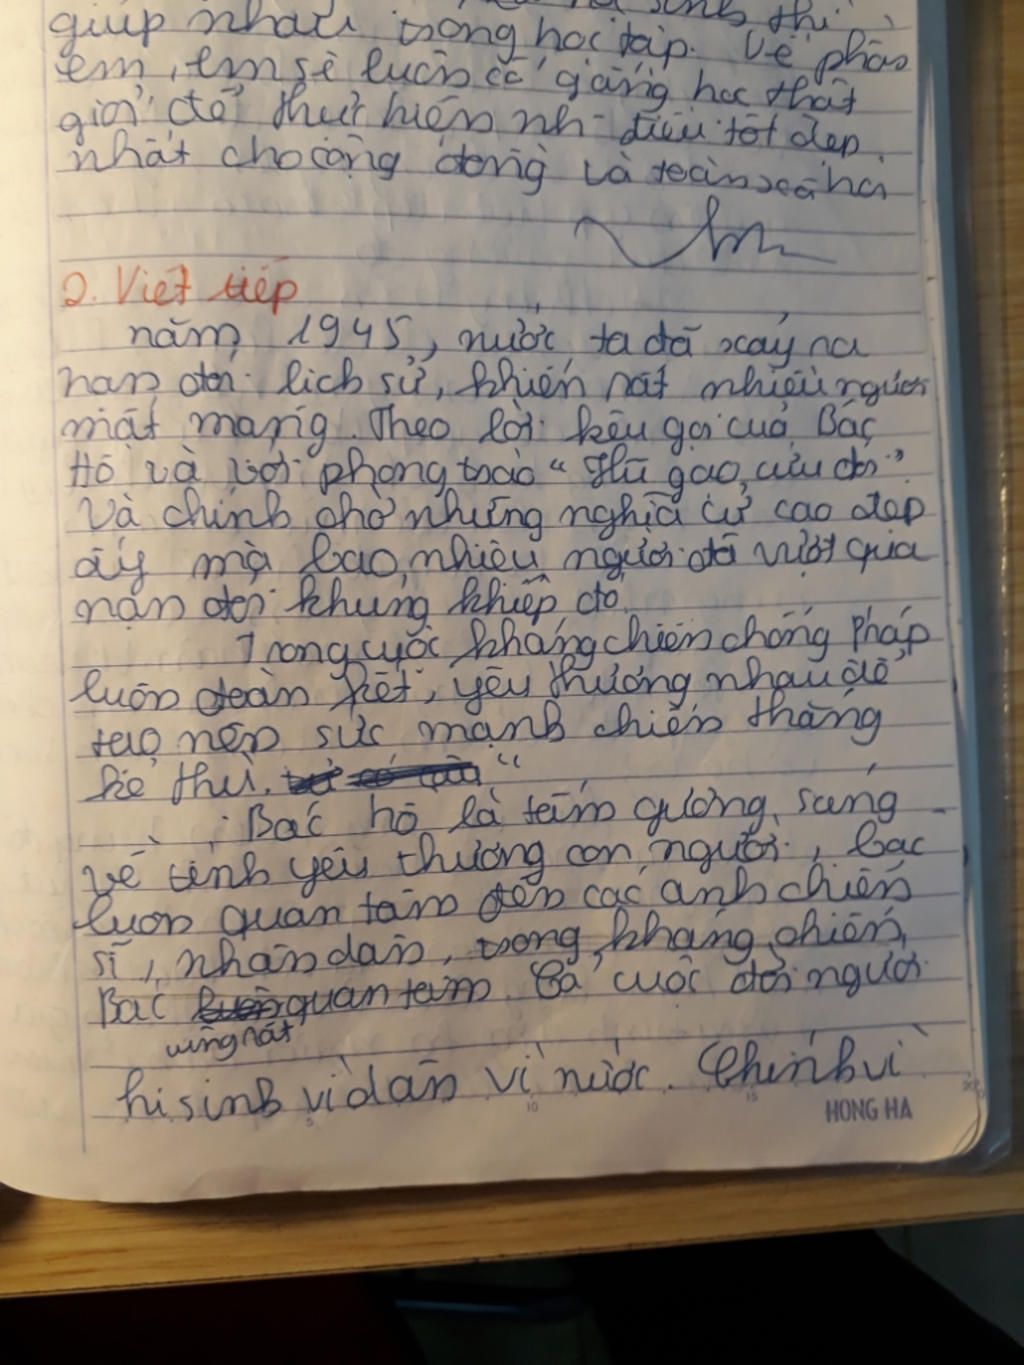 sinh thì
giúp nhau trong học tập. Về phần
em, em sẽ luôn cố gắng học thật
giỏi để thực hiện nh điều tốt đẹp
nhất cho cộng đồng và toàn xã hội
2. Viết tiếp
năm 1945, nước ta đã xảy ra
nạn đói lịch sử, khiến rất nhiều người
mất mạng. Theo lời kêu gọi của Bác
Hồ và với phong trào "Hũ gạo cứu đói"
Và chính nhờ những nghĩa cử cao đẹp
ấy mà bao nhiêu người đã vượt qua
nạn đói khủng khiếp đó.
Trong cuộc kháng chiến chống Pháp
luôn đoàn kết, yêu thương nhau để
tạo nên sức mạnh chiến thắng
kẻ thù. "
Bác hồ là tấm gương sáng
về tình yêu thương con người, bác
luôn quan tâm đến các anh chiến
sĩ, nhân dân, trong kháng chiến,
Bác quan tâm. Cả cuộc đời người
cũng rất
hi sinh vì dân vì nước. Chính vì
5 10 15 20
HONG HA